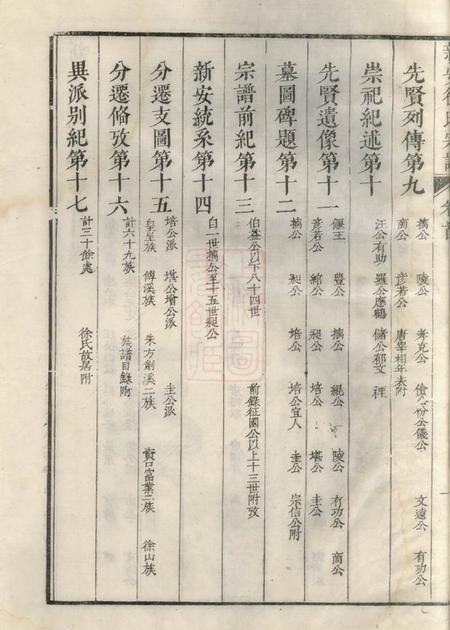 先賢列傳第九
摛公 陵公 孝克公 儉公份公儀公 文遠公 有功公
商公 彥若公 唐宰相年表附
崇祀紀述第十
汪公有助 羅公應鶴 儲公郁文
先賢遺像第十一
偃王 豐公 摛公 緄公 陵公 有功公 商公
彥若公 綰公 昶公 培公 堪公 圭公
墓圖碑題第十二
摛公 昶公 培公 培公宜人 圭公 宗信公附
宗譜前紀第十三
伯益公以下八十四世 前錄征國公以上十三世附攷
新安統系第十四
自一世摛公至十五世昶公
分遷支圖第十五
培公派 堪公增公派 圭公派
皇呈族 傅溪族 朱方劍溪二族 資口富業二族 徐山族
分遷脩攷第十六
計六十九族 族譜目錄附
異派別紀第十七
計三十餘處 徐氏故居附